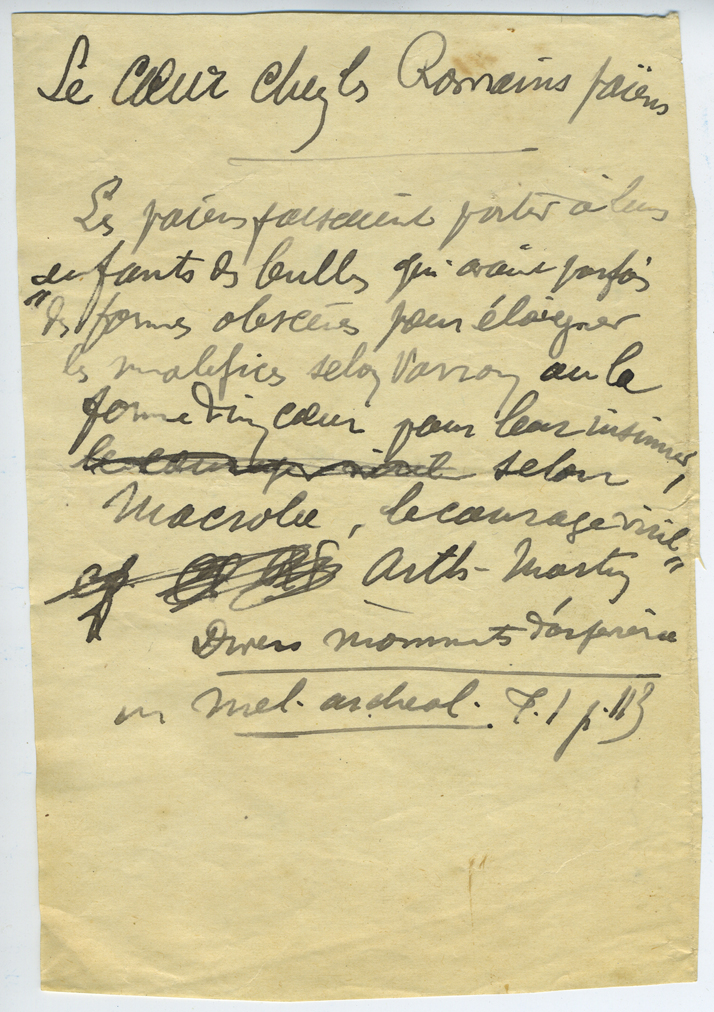 Le Cœur chez les Romains païens
Les païens faisaient porter à leurs
enfants des bulles qui avaient parfois
"des formes obscènes pour éloigner
les malefices selon Varron ou la
forme d'un cœur pour leur insinuer,
le courage viril selon
Macrobe, le courage viril"
cf. Arth. Martin
Divers monuments d'orfèvrerie
in Mel. archeol. T. 1 p. 113